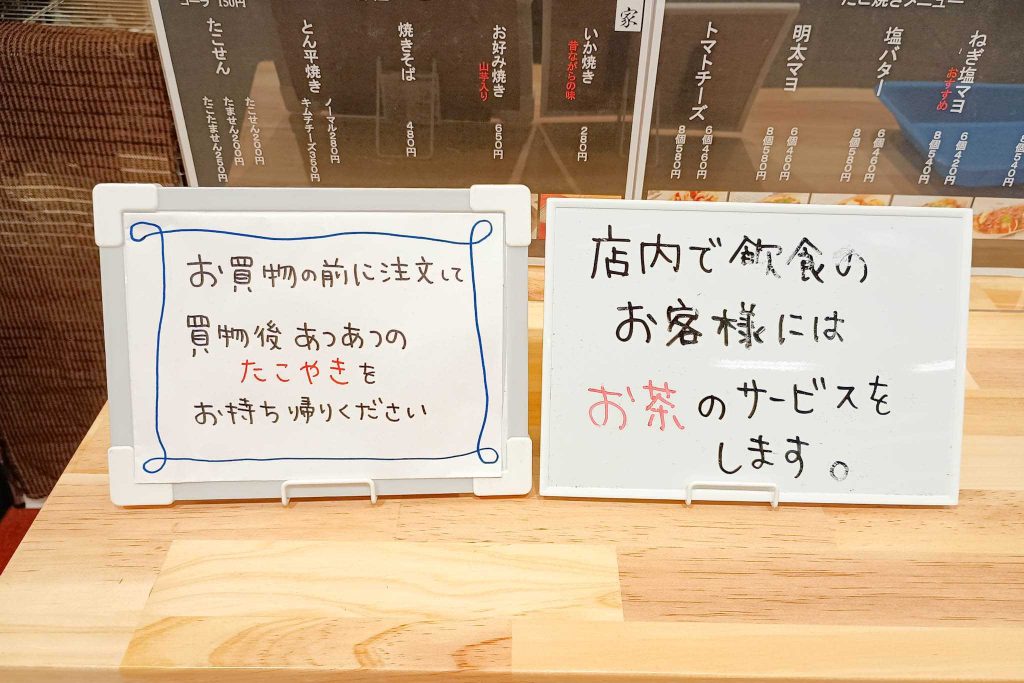 お買物の前に注文して
買物後あつあつの
たこやきを
お持ち帰りください
店内で飲食の
お客様には
お茶のサービスを
します。
コーラ 150円
家
たこ焼きメニュー
ねぎ塩マヨ
おすすめ
6個420円
8個540円
塩バター
6個460円
8個540円
明太マヨ
6個460円
8個580円
トマトチーズ
6個460円
8個580円
いか焼き
昔ながらの味
280円
お好み焼き
山芋入り
650円
焼きそば
480円
とん平焼き
ノーマル280円
キムチチーズ350円
たこせん
たこせん200円
たません200円
たこたません250円